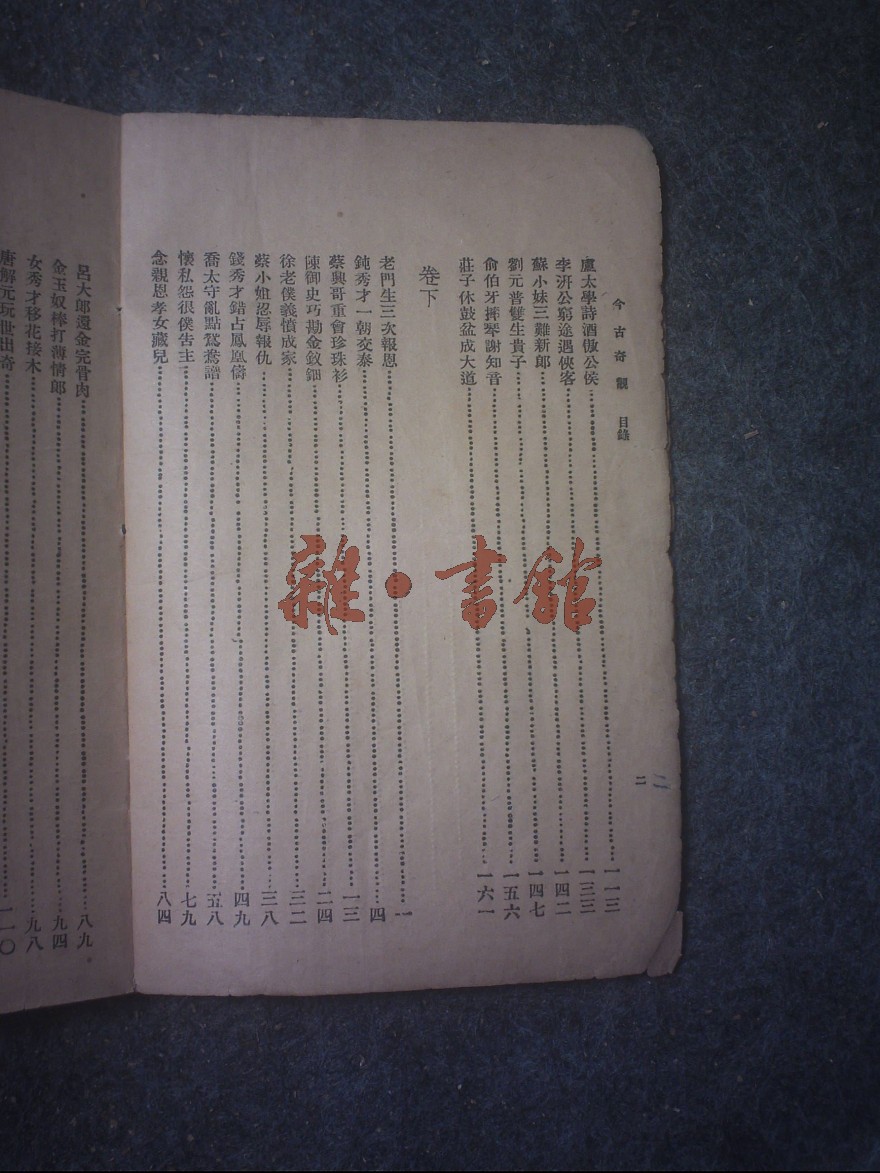 今古奇觀 目錄 二
盧太學詩酒傲公侯……一一三
李汧公窮途遇俠客……一三三
蘇小妹三難新郎……一四二
劉元普雙生貴子……一四七
俞伯牙摔琴謝知音……一五六
莊子休鼓盆成大道……一六一
卷下
老門生三次報恩……一
鈍秀才一朝交泰……四
蔡興哥重會珍珠衫……一三
陳御史巧勘金釵鈿……二四
徐老僕義憤成家……三二
蔡小姐忍辱報仇……三八
錢秀才錯占鳳凰儔……四九
喬太守亂點鴛鴦譜……五八
懷私怨很僕告主……七九
念親恩孝女藏兒……八四
呂大郎還金完骨肉……八九
金玉奴棒打薄情郎……九四
女秀才移花接木……九八
唐解元玩世出奇……一一〇
雜·書館